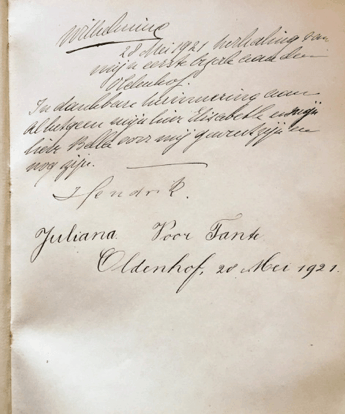 Wilhelmina
28 Mei 1921 herhaling van
mijn eerste bezoek aan den
Oldenhof.
In dankbare herinnering aan
al hetgeen mijn lieve Elisabeth en mijn
lieve Bella voor mij geweest zijn en
nog zijn.
Hendrik.
Juliana Voor Tante
Oldenhof, 28 Mei 1921.